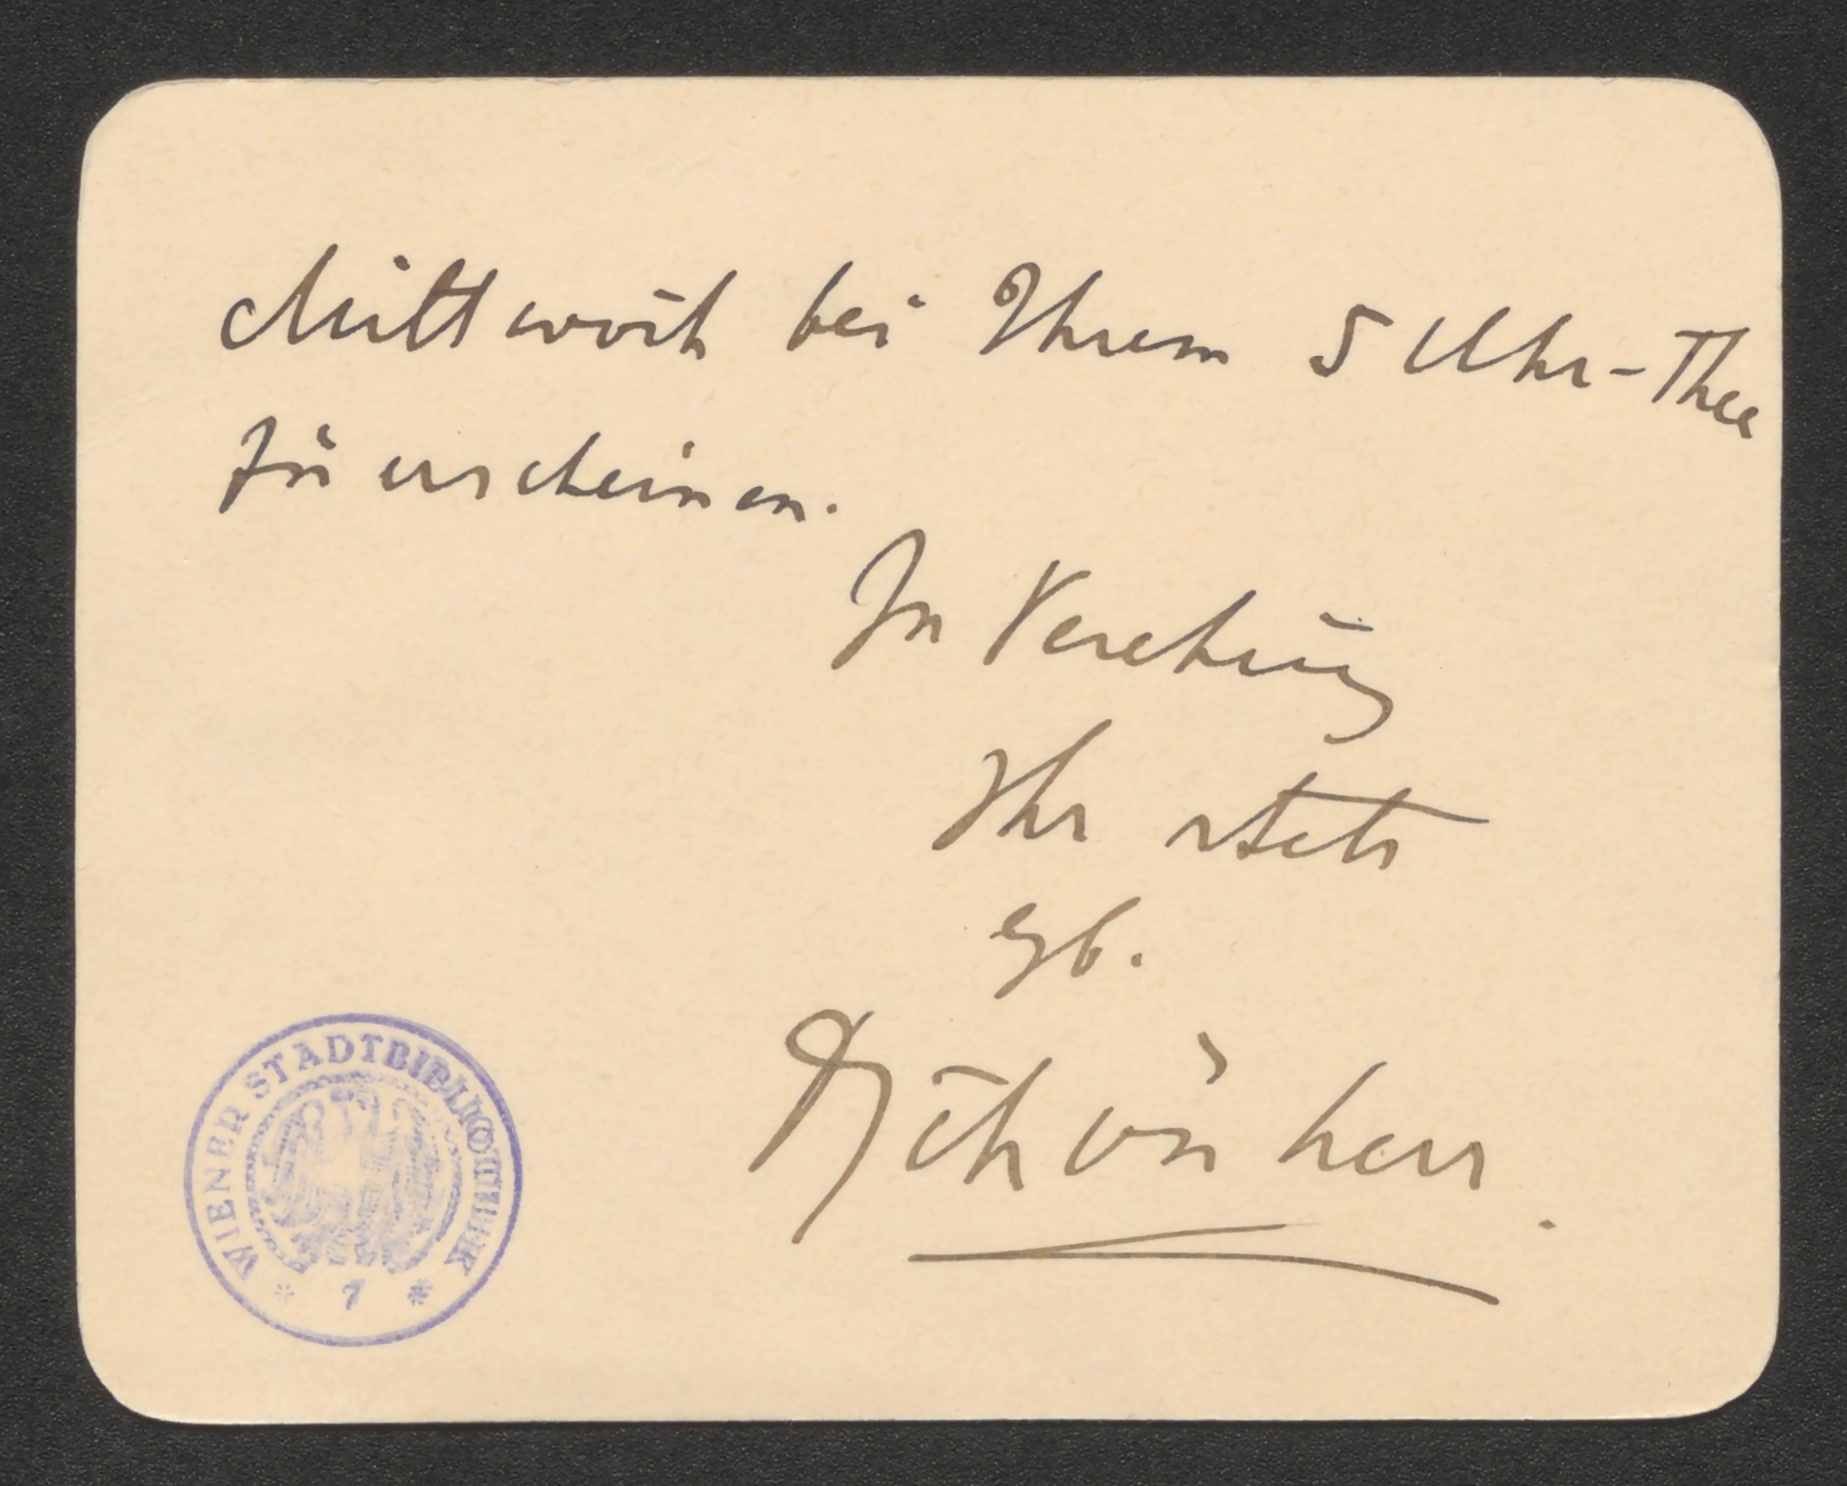 Mittwoch bei Ihrem 5 Uhr-Thee
zu erscheinen.
In Verehrung
Ihr stets
erg.
Schönherr.
WIENER STADTBIBLIOTHEK
* 7 *